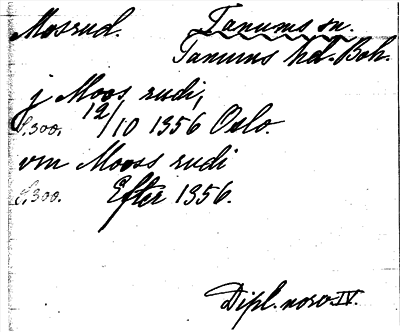 Mosrud. Tanums sn.
Tanums hd. Boh.
j Moos rudi,
S. 300. 12/10 1356 Oslo.
vm Mooss rudi
S. 300. Efter 1356.
Dipl. norv. IV.